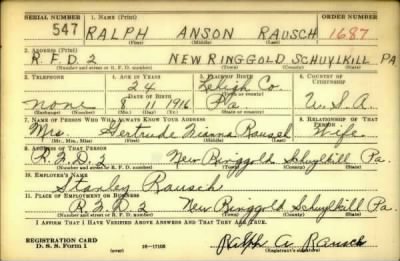 SERIAL NUMBER 1. NAME (Print) ORDER NUMBER
547 RALPH ANSON RAUSCH 1687
(First) (Middle) (Last)
2. ADDRESS (Print)
R.F.D. 2 NEW RINGGOLD SCHUYLKILL PA
(Number and street or R. F. D. number) (Town) (County) (State)
3. TELEPHONE 4. AGE IN YEARS 5. PLACE OF BIRTH 6. COUNTRY OF CITIZENSHIP
24 Lehigh Co.
DATE OF BIRTH (Town or county)
none 8 11 1916 Pa U.S.A.
(Exchange) (Number) (Mo.) (Day) (Yr.) (State or country)
7. NAME OF PERSON WHO WILL ALWAYS KNOW YOUR ADDRESS 8. RELATIONSHIP OF THAT PERSON
Mrs. Gertrude Rausch Wife
(Mr., Mrs., Miss) (First) (Middle) (Last)
9. ADDRESS OF THAT PERSON
R.F.D. 2 New Ringgold Schuylkill Pa.
(Number and street or R. F. D. number) (Town) (County) (State)
10. EMPLOYER'S NAME
Stanley Rausch
11. PLACE OF EMPLOYMENT OR BUSINESS
R.F.D. 2 New Ringgold Schuylkill Pa.
(Number and street or R. F. D. number) (Town) (County) (State)
I AFFIRM THAT I HAVE VERIFIED ABOVE ANSWERS AND THAT THEY ARE TRUE.
REGISTRATION CARD
D. S. S. Form 1 (over) 16-17105 Ralph A. Rausch